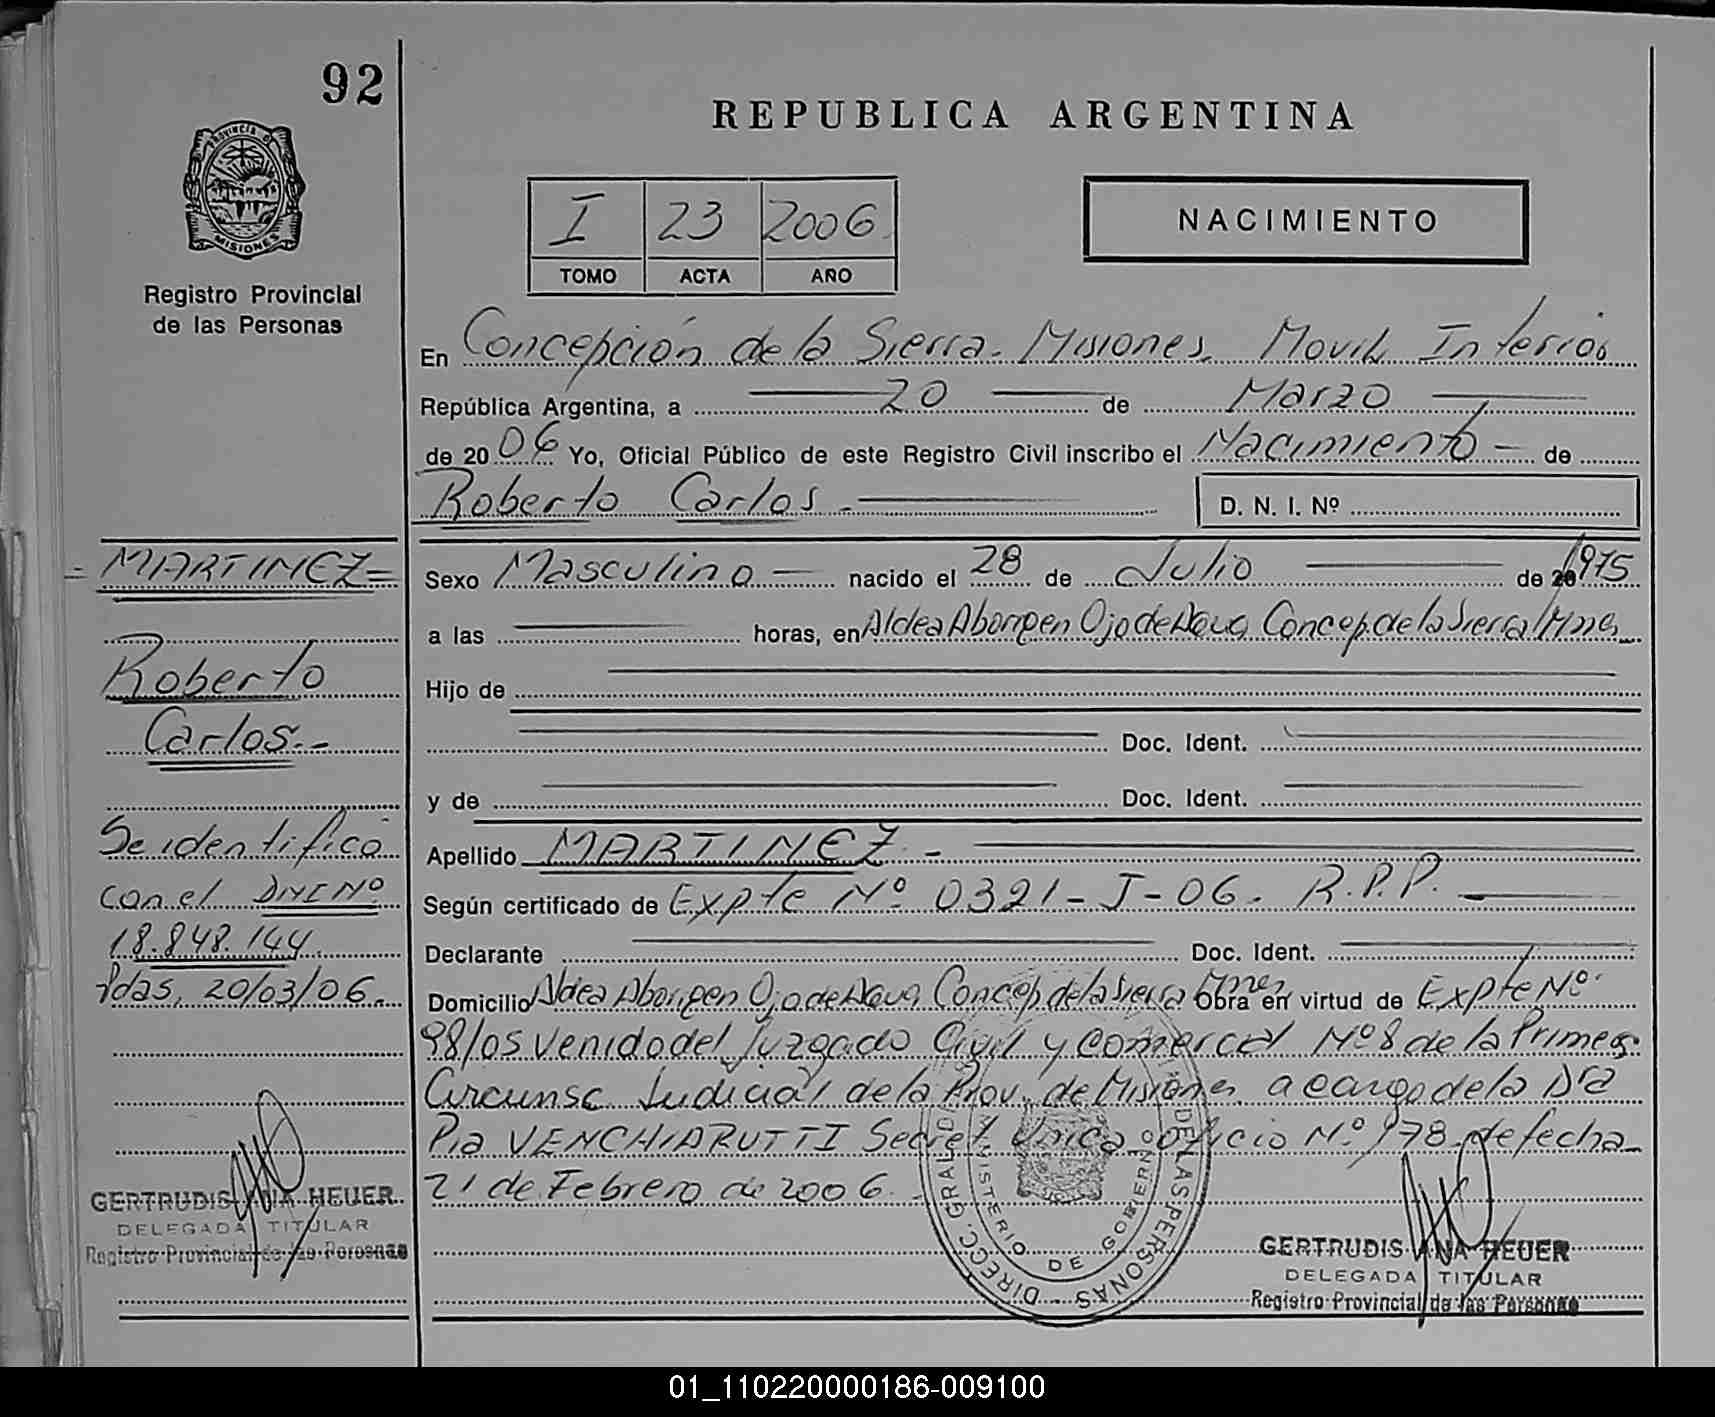 92
PROVINCIA DE
MISIONES
Registro Provincial
de las Personas
REPUBLICA ARGENTINA
I 23 2006
TOMO ACTA AÑO
NACIMIENTO
En Concepción de la Sierra. Misiones. Movil Interior
República Argentina, a 20 de Marzo
de 2006 Yo, Oficial Público de este Registro Civil inscribo el Nacimiento de
Roberto Carlos. D. N. I. Nº
Sexo Masculino nacido el 28 de Julio de 1975
a las horas, en Aldea Aborigen Ojo de Agua Concep. de la Sierra Mnes
Hijo de
Doc. Ident.
y de Doc. Ident.
Apellido MARTINEZ.-
Según certificado de Expte Nº 0321-J-06. R.P.P.
Declarante Doc. Ident.
Domicilio Aldea Aborigen Ojo de Agua Concep. de la Sierra Mnes Obra en virtud de Expte Nº
98/05 venido del Juzgado Civil y Comercial Nº 8 de la Primera
Circunsc Judicial de la Prov. de Misiones a cargo de la Dra
Pia VENCHIARUTTI Secret Unica oficio Nº 978 de fecha
21 de Febrero de 2006.
MARTINEZ=
Roberto
Carlos.-
Se identificó
con el DNI Nº
18.848.144.
Pdas, 20/03/06.
GERTRUDIS ANA HEUER
DELEGADA TITULAR
Registro Provincial de las Personas
DIRECC. GRAL. DE LAS PERSONAS
MINISTERIO DE GOBIERNO
GERTRUDIS ANA HEUER
DELEGADA TITULAR
Registro Provincial de las Personas
01_110220000186-009100